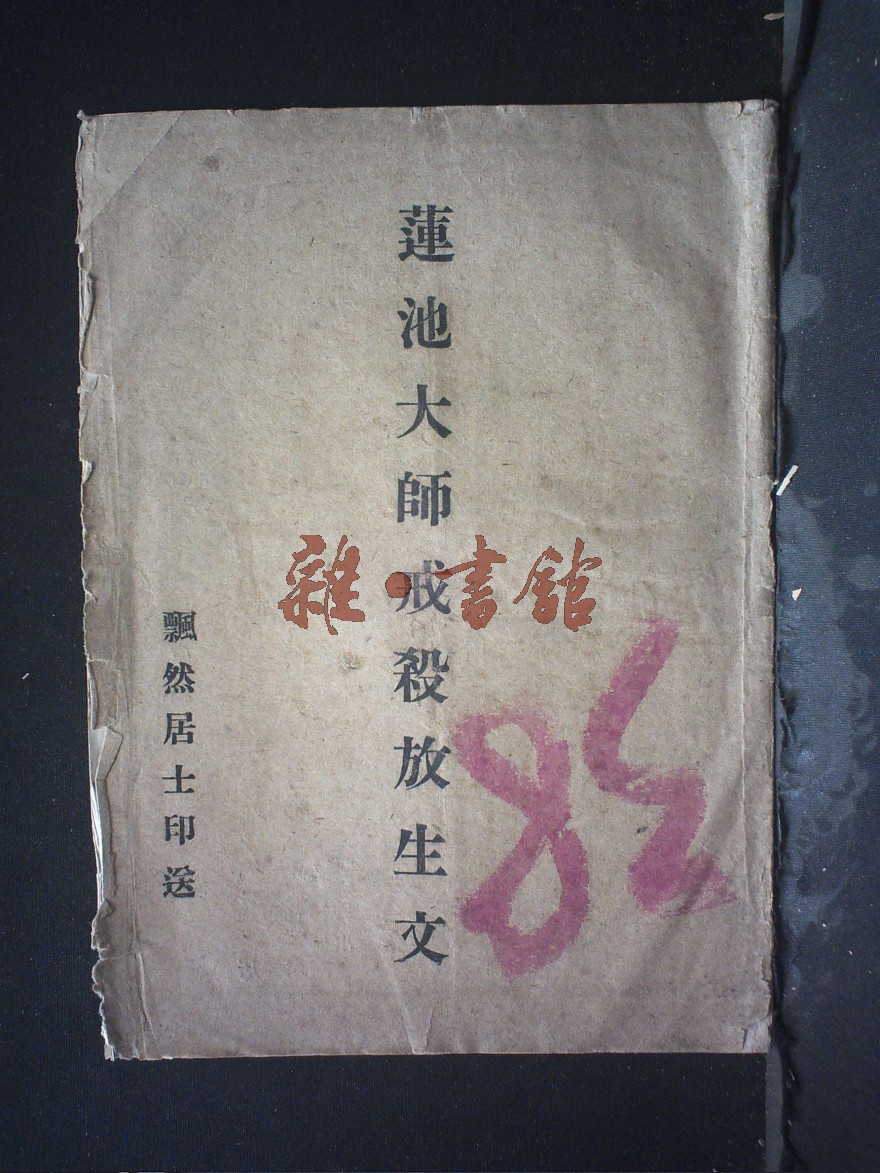 蓮池大師戒殺放生文
飄然居士印送
雜·書館
83